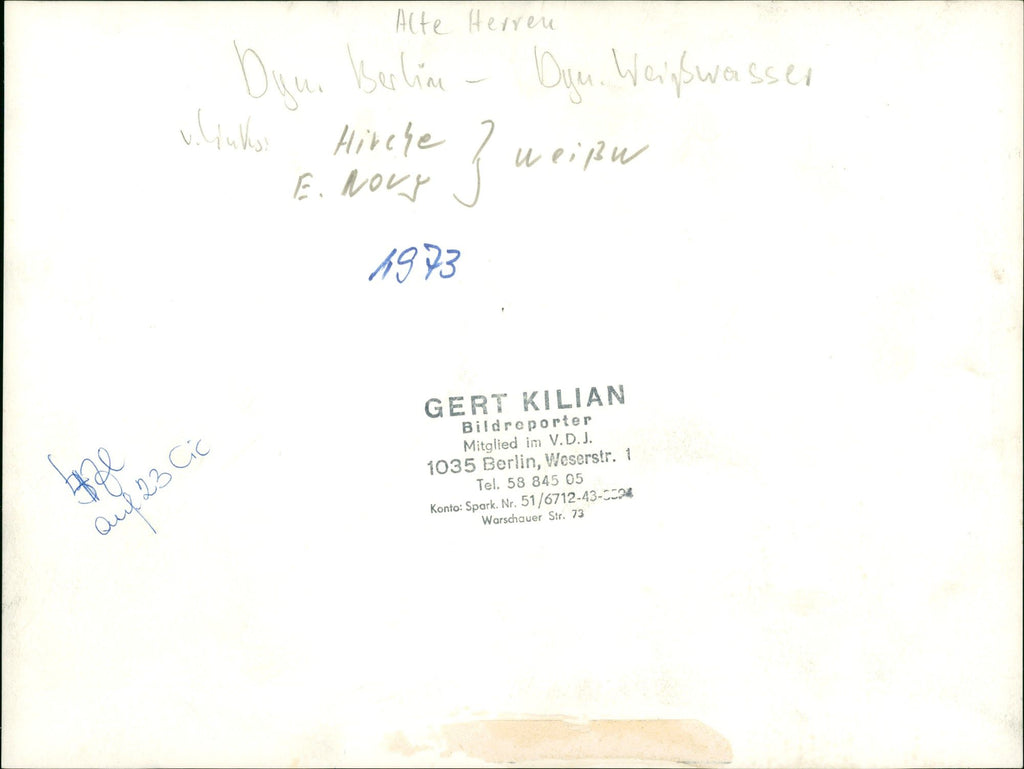 Alte Herren
Dyn. Berlin – Dyn. Weißwasser
v. links: Hirche } Weißw
E. Novy
1973
GERT KILIAN
Bildreporter
Mitglied im V.D.J.
1035 Berlin, Weserstr. 1
Tel. 58 845 05
Konto: Spark. Nr. 51/6712-43-
Warschauer Str. 73
auf 23 Cic